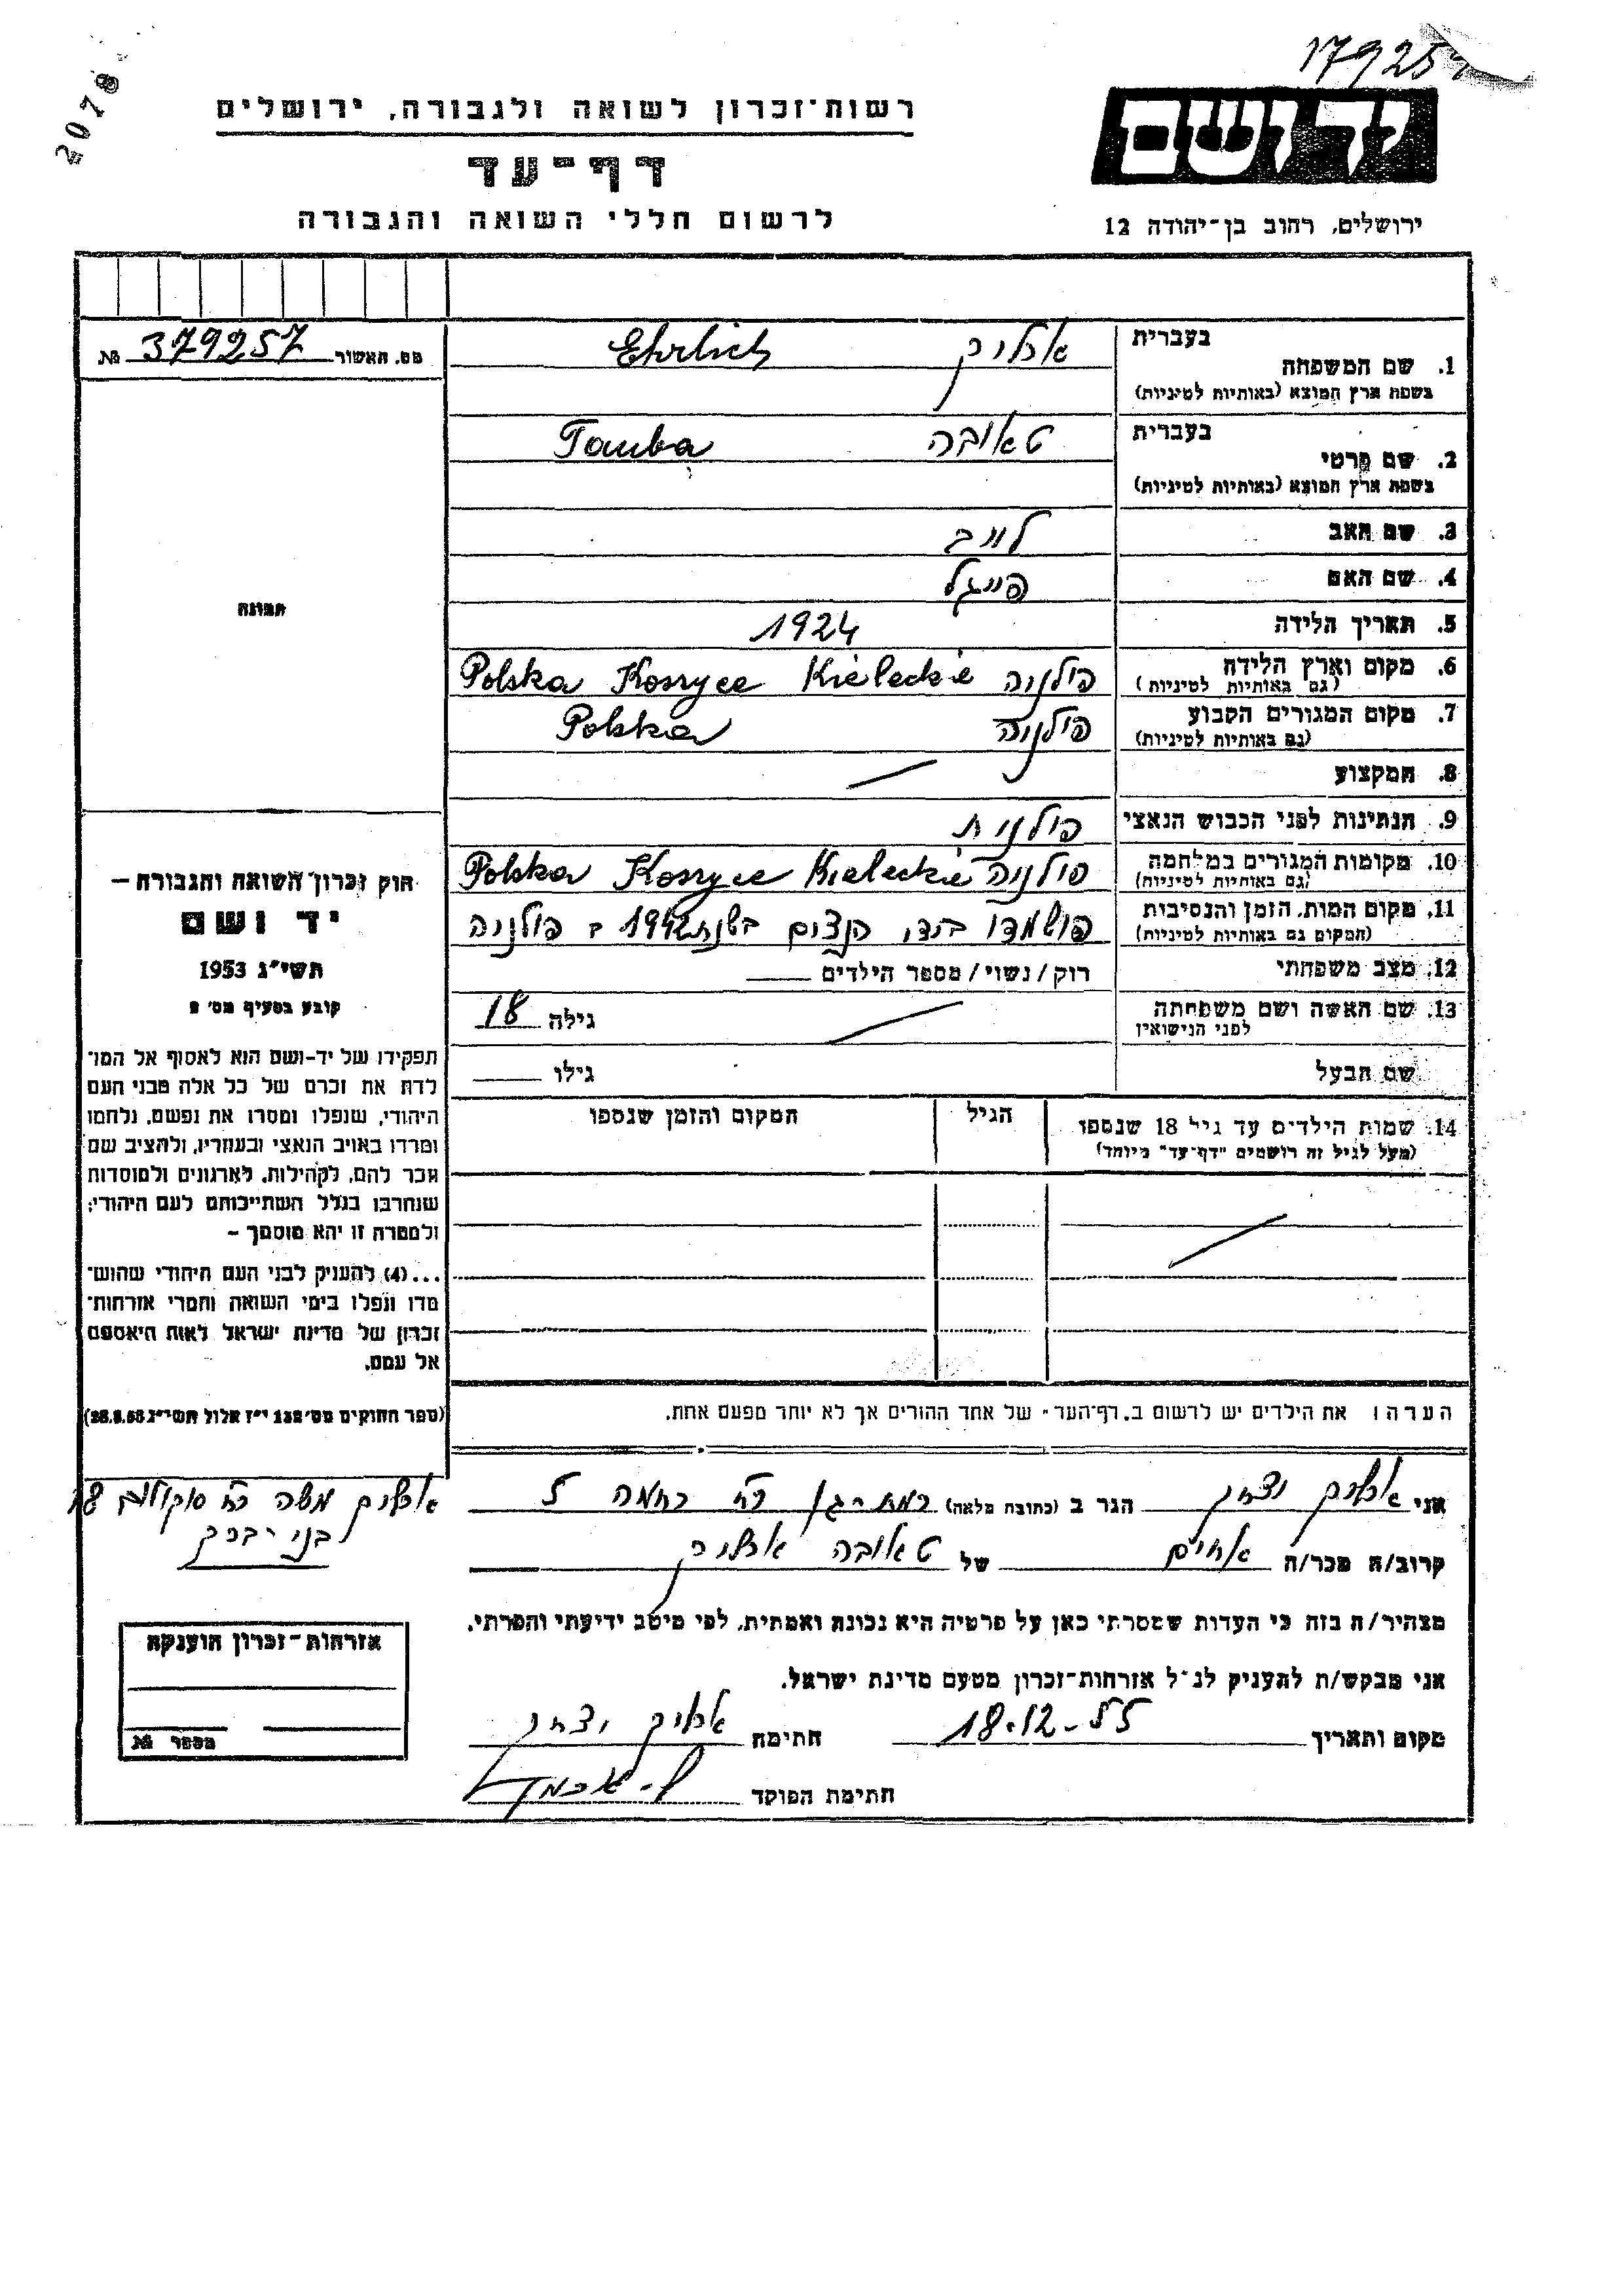 2078
179257
רשות־זכרון לשואה ולגבורה, ירושלים
יד ושם
דף־עד
לרשום חללי השואה והגבורה
ירושלים, רחוב בן־יהודה 12
מס. תאשור 379257 №
תמונה
חוק זכרון השואה והגבורה —
יד ושם
תשי״ג 1953
קובע בסעיף מס׳ 2
תפקידו של יד-ושם הוא לאסוף אל המו־
לדת את זכרם של כל אלה מבני העם
היהודי, שנפלו ומסרו את נפשם, נלחמו
ומרדו באויב הנאצי ובעוזריו, ולהציב שם
וזכר להם, לקהילות, לארגונים ולמוסדות
שנחרבו בגלל השתייכותם לעם היהודי;
ולמטרה זו יהא מוסמך —
...(4) להעניק לבני העם היהודי שהוש־
מדו ונפלו בימי השואה והמרי אזרחות־
זכרון של מדינת ישראל לאות היאספם
אל עמם.
(ספר החוקים מס׳ 132 י״ז אלול תשי״ג 28.8.53)
בעברית
1. שם המשפחה
בשפת ארץ המוצא (באותיות לטיניות)
ארליך Ehrlich
בעברית
2. שם פרטי
בשפת ארץ המוצא (באותיות לטיניות)
טאובה Tauba
3. שם האב לייב
4. שם האם פייגל
5. תאריך הלידה 1924
6. מקום וארץ הלידה
(גם באותיות לטיניות)
פולניה Polska Koszyce Kieleckie
7. מקום המגורים הקבוע
(גם באותיות לטיניות)
פולניה Polska
8. המקצוע
9. הנתינות לפני הכבוש הנאצי פולנית
10. מקומות המגורים במלחמה
(גם באותיות לטיניות)
פולניה Polska Koszyce Kieleckie
11. מקום המות, הזמן והנסיבות
(המקום גם באותיות לטיניות)
הושמדו בידי הנצים בשנת 1942 ב פולניה
12. מצב משפחתי רוק/נשוי/מספר הילדים
13. שם האשה ושם משפחתה
לפני הנישואין
גילה 18
שם הבעל גילו
14. שמות הילדים עד גיל 18 שנספו
(מעל לגיל זה רושמים "דף־עד" מיוחד)
הגיל
המקום והזמן שנספו
הערה: את הילדים יש לרשום ב„דף־העד״ של אחד ההורים אך לא יותר מפעם אחת.
אני ארליך יצחק הגר ב (כתובת מלאה) רמת-גן רח
קרוב/ה מכר/ה אחים של טאובה ארליך
ארליך משה רח סוקולוב 18
בני-ברק
מצהיר/ה בזה כי העדות שמסרתי כאן על פרטיה היא נכונה ואמתית, לפי מיטב ידיעתי והכרתי.
אני מבקש/ת להעניק לנ״ל אזרחות-זכרון מטעם מדינת ישראל.
מקום ותאריך 18-12-55 חתימה ארליך יצחק
חתימת הפוקד
אזרחות־זכרון הוענקה
מספר №